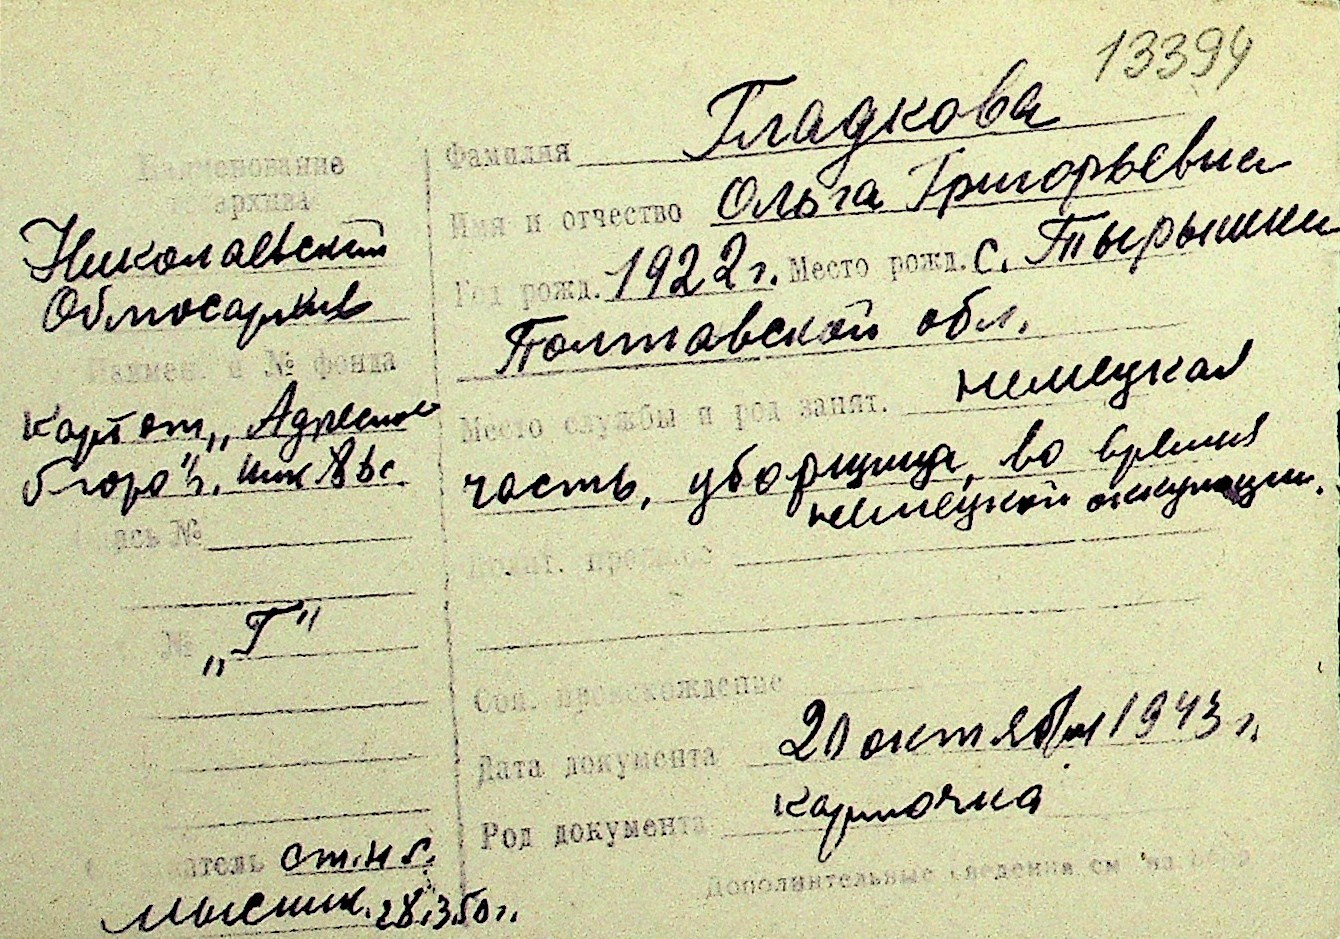 13394
Фамилия Гладкова
Имя и отчество Ольга Григорьевна
Год рожд. 1922 г. Место рожд. с. Тырышки
Полтавской обл.
Место службы и род занят. немецкая
часть, уборщица, во время
немецкой оккупации.
Полит. прошлое
Соц. происхождение
Дата документа 20 октября 1943 г.
Род документа карточка
Дополнительные сведения см. на обор
Наименование
архива
Николаевский
Облгосархив
Наимен. и № фонда
Картот. „Адресное
бюро"
Опись №
№ „Г"
Составитель ст.н.с.
28.3.50 г.